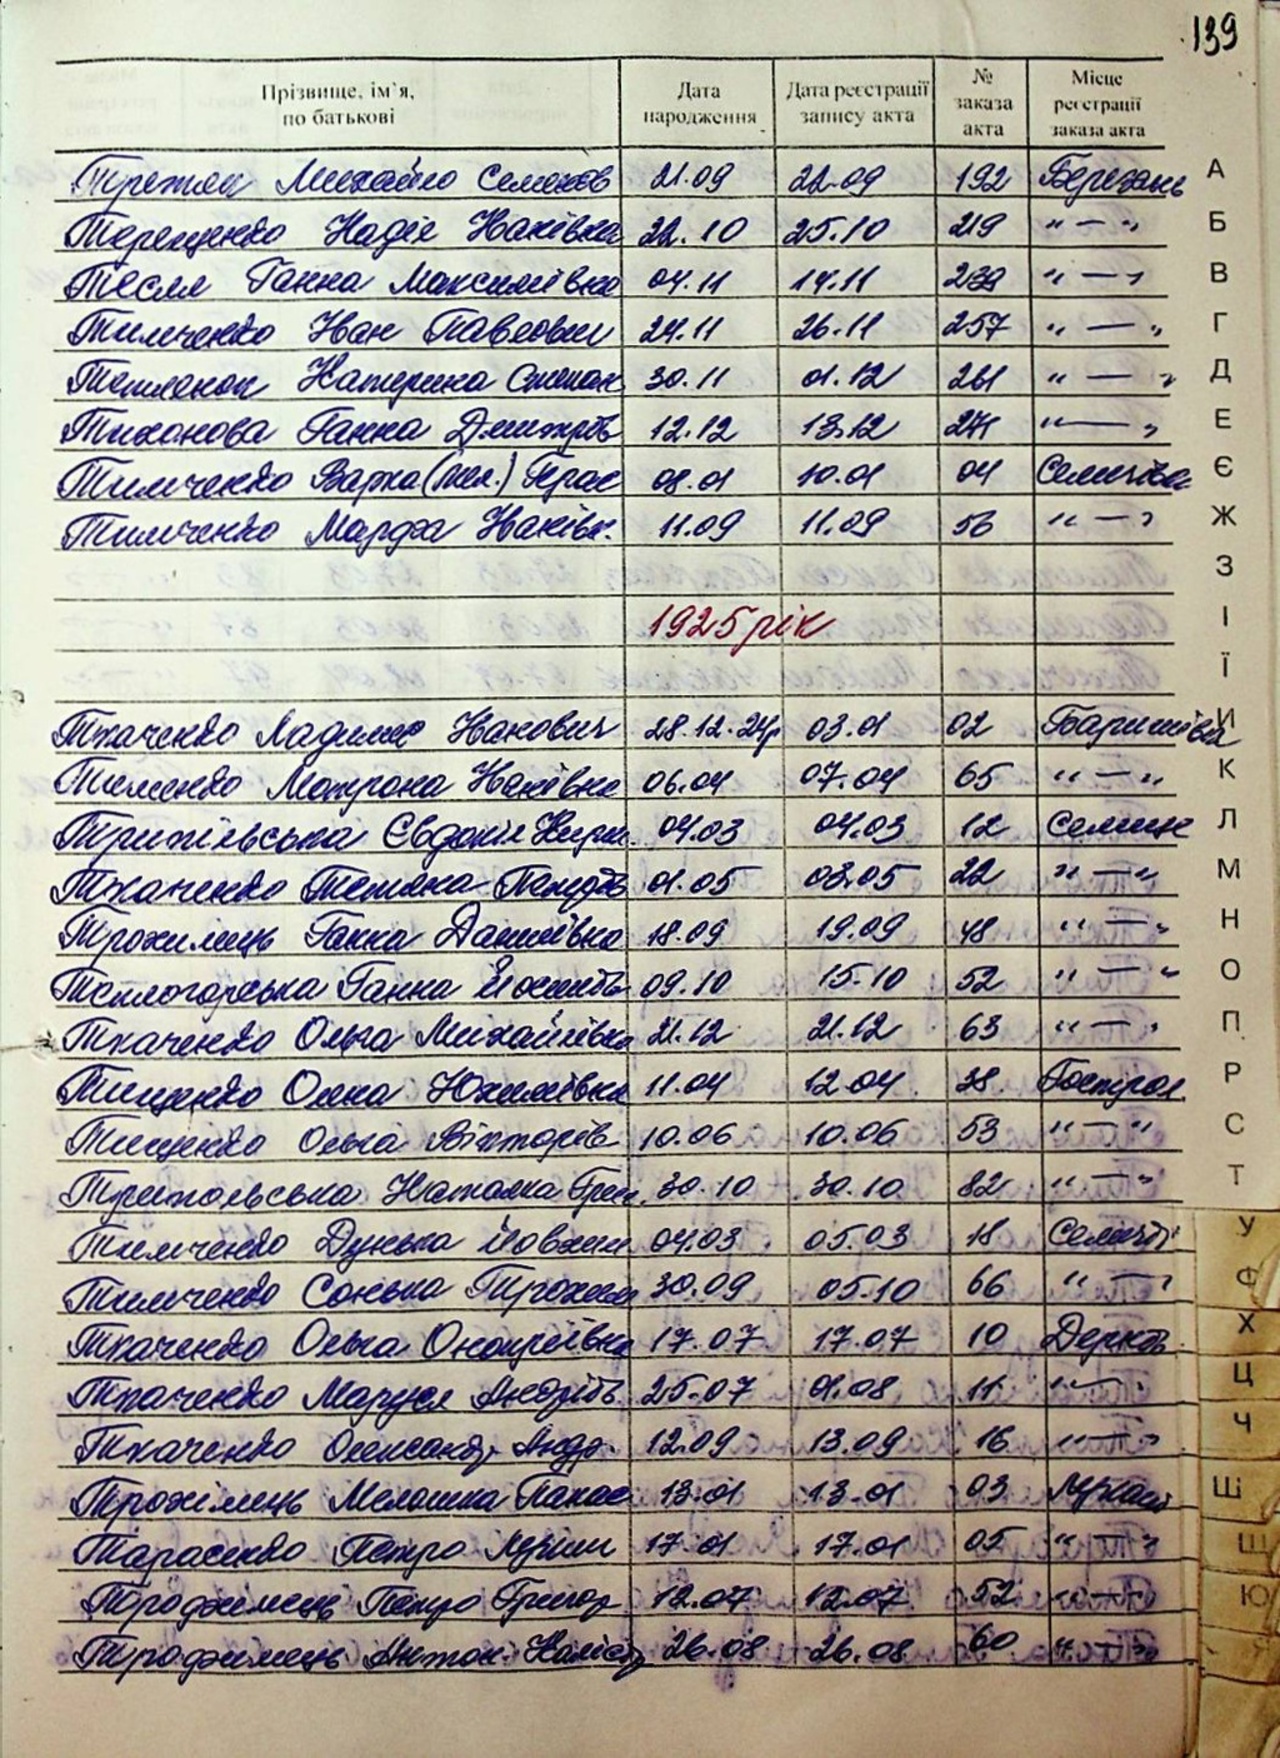 139
Прізвище, ім'я, по батькові Дата народження Дата реєстрації запису акта № заказа акта Місце реєстрації заказа акта
Михайло Семенов 21.09 22.09 192 Березань А
Терещенко Надія Іванівна 22.10 25.10 219 " — " Б
Тесля Ганна Максимівна 04.11 14.11 239 " — " В
Тимченко Іван Павлович 24.11 26.11 257 " — " Г
Катерина Степан 30.11 01.12 261 " — " Д
Тиханова Ганна Дмитрів 12.12 13.12 271 " — " Е
Тимченко Варка 08.01 10.01 04 Семенівка Є
Тимченко Марфа Іванівн. 11.09 11.09 56 " — " Ж
З
1925 рік І
Ї
Ткаченко Іванович 28.12.24р 03.01 02 Баришівка И
Мотрона Іванівна 06.04 07.04 65 " — " К
Євдокія 04.03 04.03 12 Л
Ткаченко Тетяна 01.05 03.05 22 " — " М
Трохимець Ганна Данилівна 18.09 19.09 48 " — " Н
Теплогорська Ганна Йосипів 09.10 15.10 52 " — " О
Ткаченко Ольга Михайлівна 21.12 21.12 63 " — " П
Тищенко Олена Юхимівна 11.04 12.04 38 Гострол. Р
Тищенко Ольга Вікторів 10.06 10.06 53 " — " С
Наталка Григ. 30.10 30.10 82 " — " Т
Тимченко Дунька Йовхим 04.03 05.03 18 У
Тимченко Сонька Трохим 30.09 05.10 66 " — " Ф
Ткаченко Ольга Онопріївна 17.07 17.07 10 Х
Ткаченко Маруся Андріїв 25.07 01.08 11 " — " Ц
Ткаченко Олександр Андр. 12.09 13.09 16 " — " Ч
Трохімець Мелашка Панас 13.01 13.01 03 Ш
Тарасенко Петро 17.01 17.01 05 " — " Щ
Трофимець Петро Григор 12.07 12.07 52 " — " Ю
Трофимець Антон 26.08 26.08 60 " — " Я